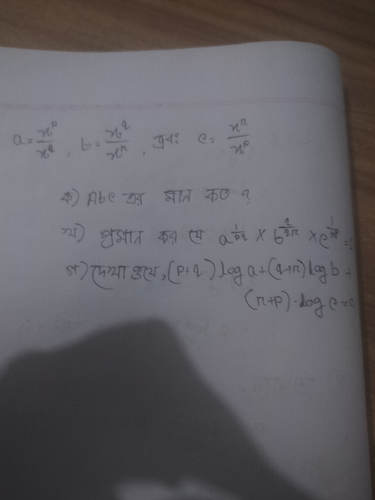 a = x^p/x^q , b = x^q/x^n , এবং c = x^n/x^p
ক) Abc এর মান কত ?
খ) প্রমান কর যে a^ × b^ × c^ =
গ) দেখাও যে, (p+q) log a + (q+n) log b +
(n+p) . log c =